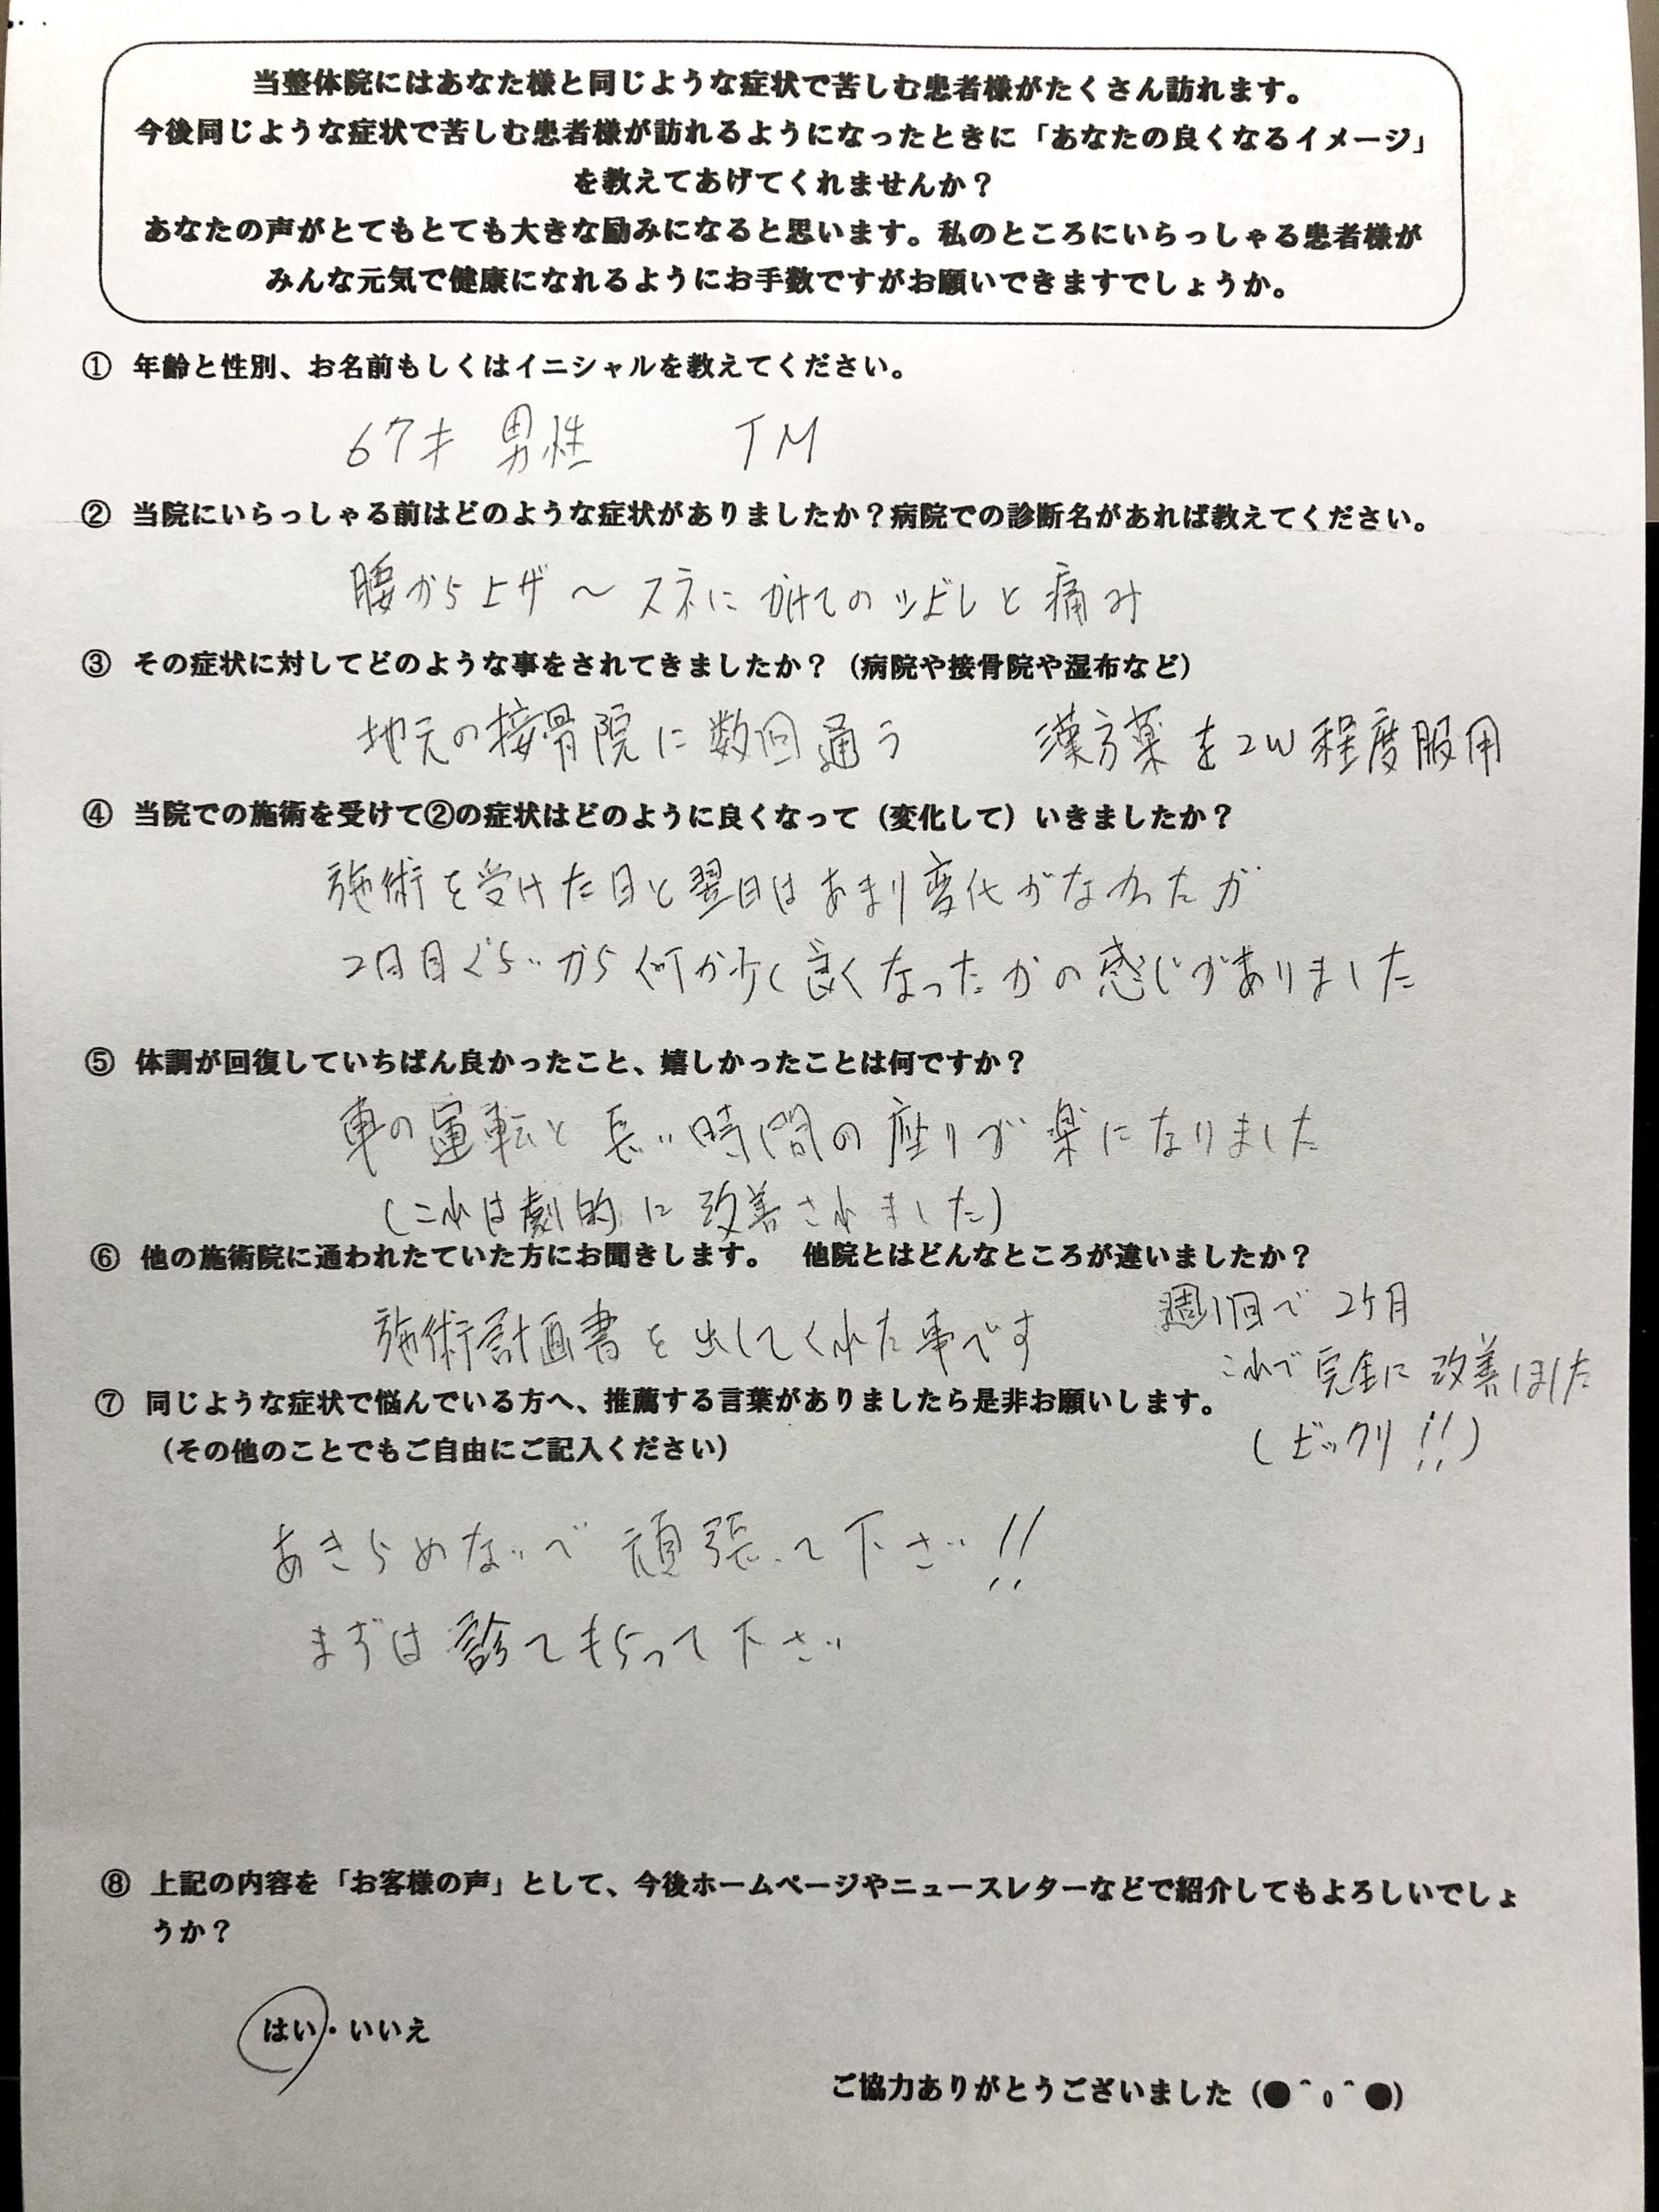 当整体院にはあなた様と同じような症状で苦しむ患者様がたくさん訪れます。
今後同じような症状で苦しむ患者様が訪れるようになったときに「あなたの良くなるイメージ」
を教えてあげてくれませんか？
あなたの声がとてもとても大きな励みになると思います。私のところにいらっしゃる患者様が
みんな元気で健康になれるようにお手数ですがお願いできますでしょうか。
① 年齢と性別、お名前もしくはイニシャルを教えてください。
67才 男性 TM
② 当院にいらっしゃる前はどのような症状がありましたか？病院での診断名があれば教えてください。
腰から上ザ～スネにかけてのシビレと痛み
③ その症状に対してどのような事をされてきましたか？（病院や接骨院や湿布など）
地元の接骨院に数回通う 漢方薬を2W程度服用
④ 当院での施術を受けて②の症状はどのように良くなって（変化して）いきましたか？
施術を受けた日と翌日はあまり変化がなかったが
2日目ぐらいから何か少し良くなったかの感じがありました
⑤ 体調が回復していちばん良かったこと、嬉しかったことは何ですか？
車の運転と長い時間の座りが楽になりました
(これは劇的に改善されました)
⑥ 他の施術院に通われたていた方にお聞きします。 他院とはどんなところが違いましたか？
施術計画書を出してくれた事です
週1回で2ケ月
これで完全に改善しました
(ビックリ!!)
⑦ 同じような症状で悩んでいる方へ、推薦する言葉がありましたら是非お願いします。
（その他のことでもご自由にご記入ください）
あきらめないで頑張って下さい!!
まずは診てもらって下さい
⑧ 上記の内容を「お客様の声」として、今後ホームページやニュースレターなどで紹介してもよろしいでしょ
うか？
はい・いいえ
ご協力ありがとうございました（●＾o＾●）